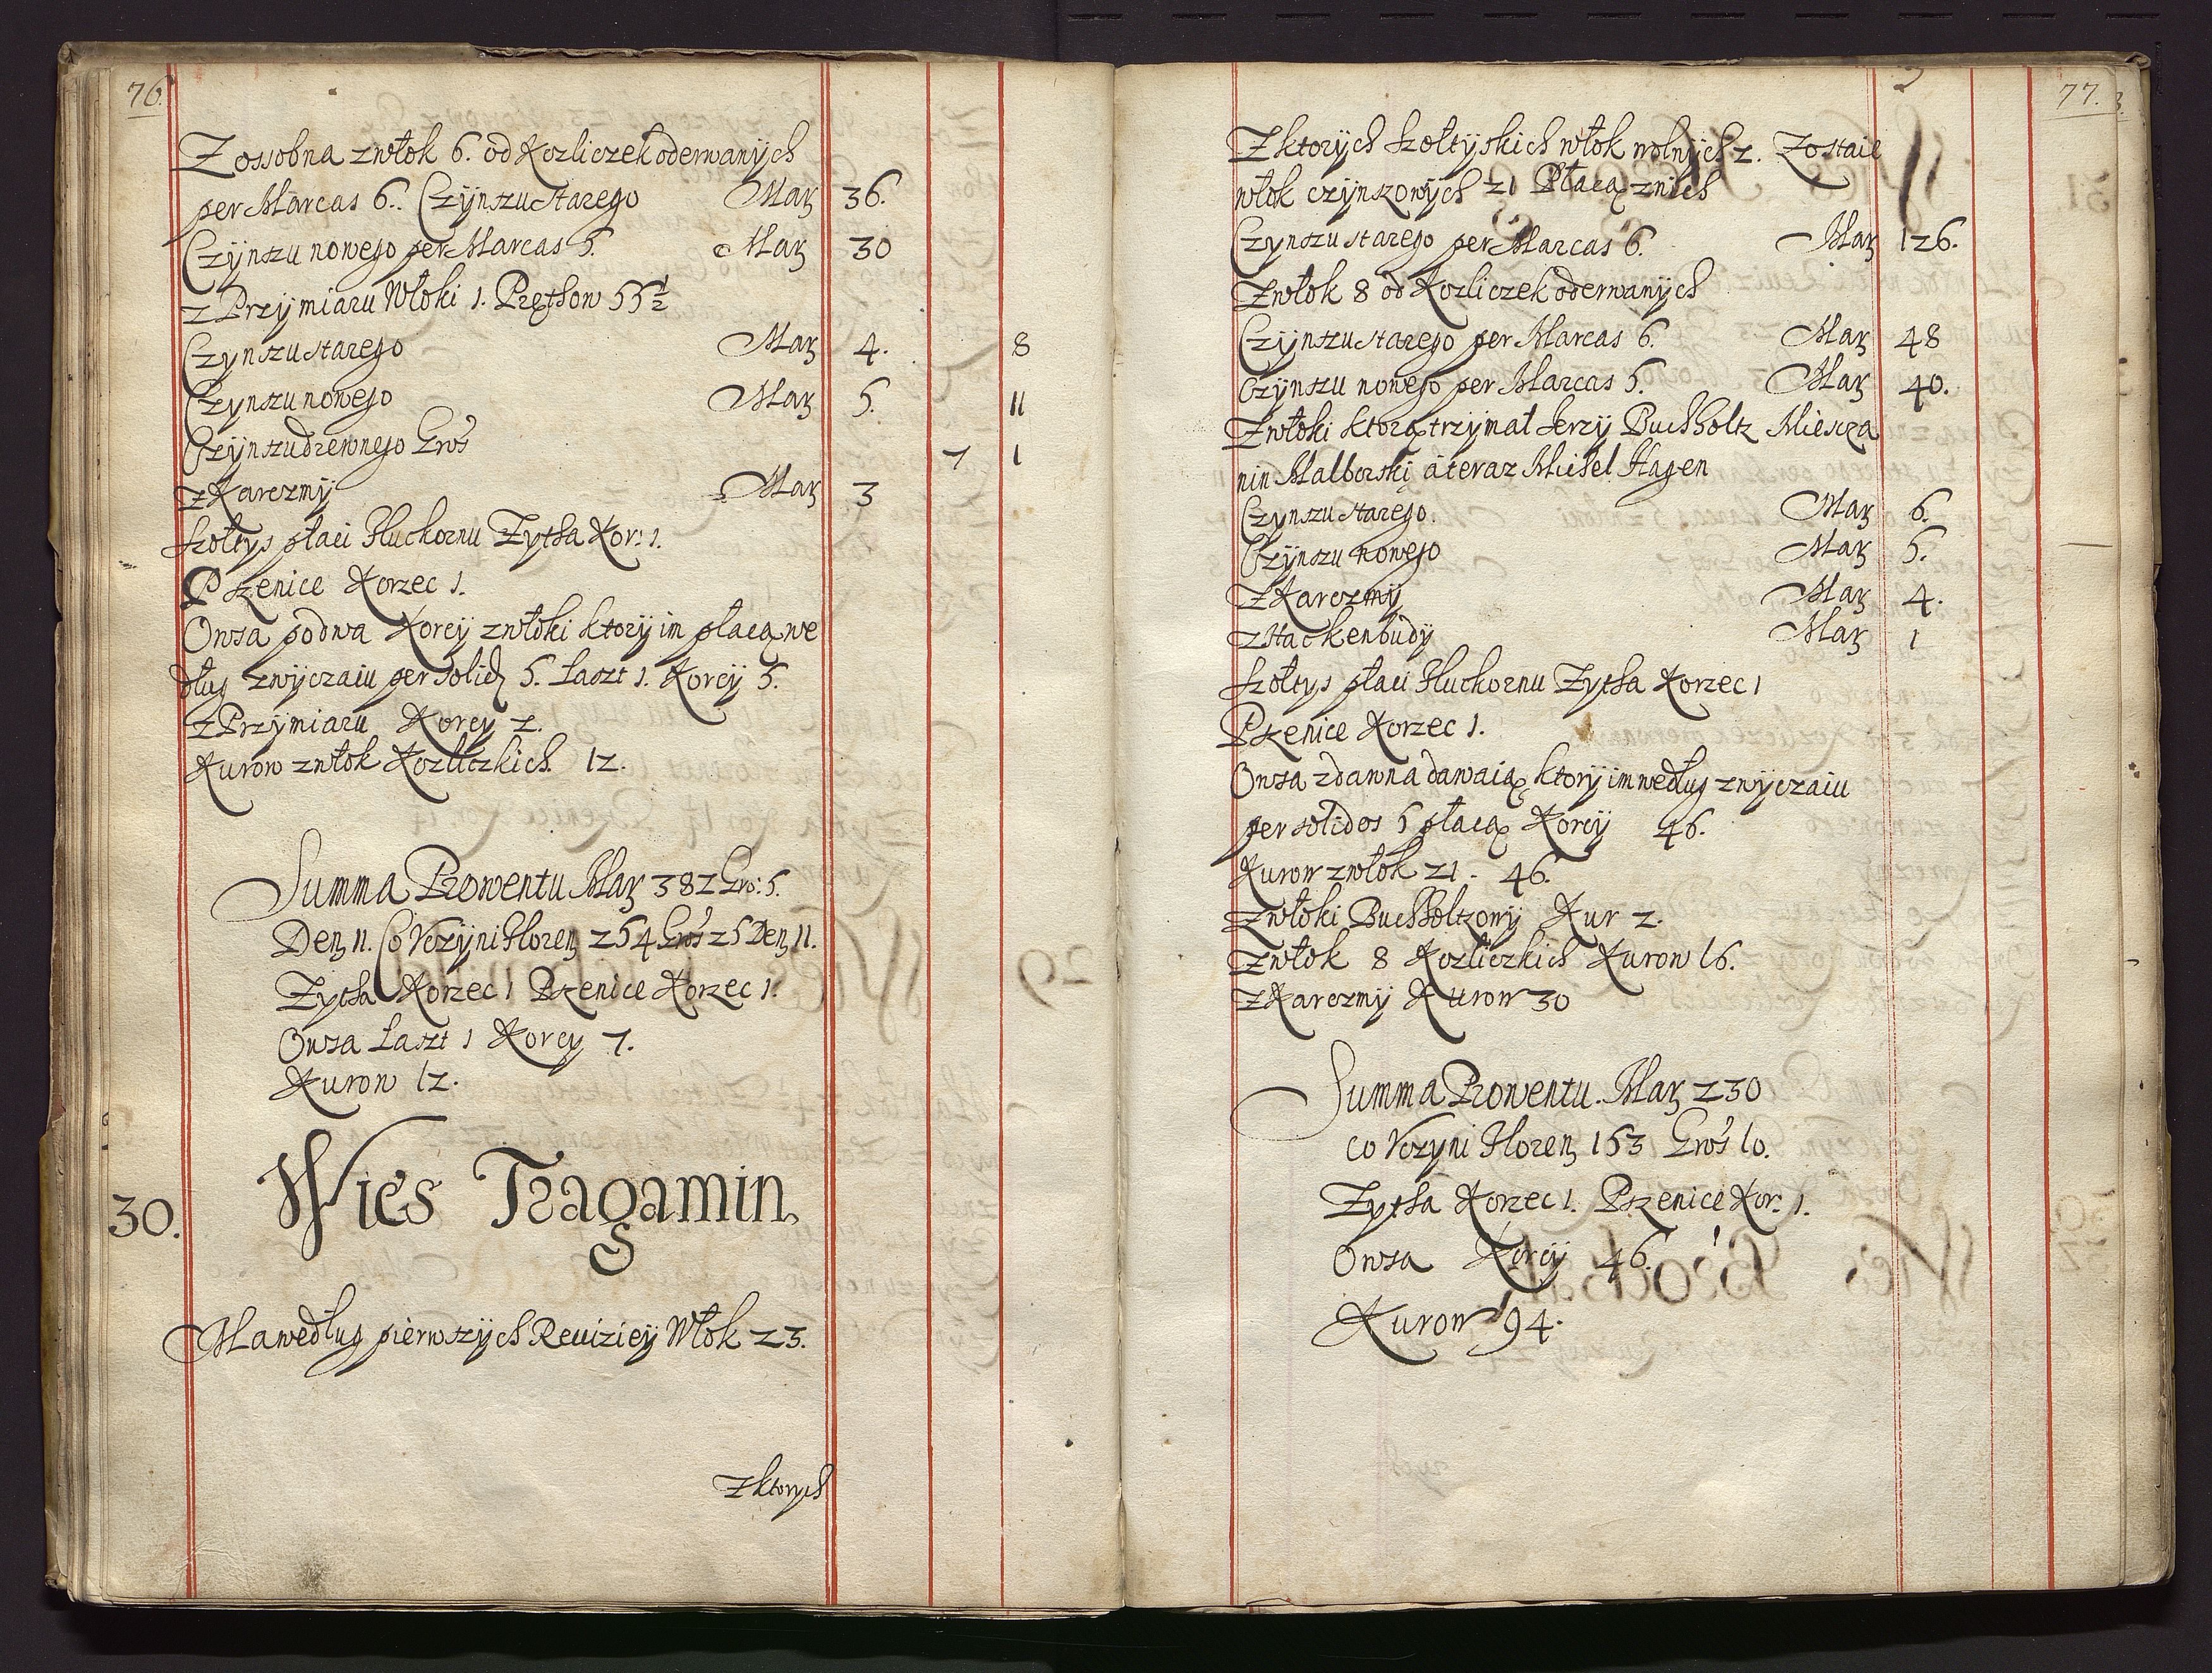 76.
Zossobna zwłok 6. od Kozliczek oderwanÿch
per Marcas 6. Czÿnszu starego Marͫ 36.
Czÿnszu nowego per Marcas 5. Marͫ 30
z Przÿmiaru Włoki 1. Pręthow 55½
Czynszu starego Marͫ 4. 8
Czynszu nowego Marͫ 5. 11
Czÿnszu drewnego Gros 7 1
z Karczmÿ Marͫ 3
Szołtys płaci Pluchornu Zytha Kor: 1.
Pszenice Korzec 1.
Owsa po dwa Korcÿ zwłoki ktorÿ im płacą we
dług zwÿczaiu per solidͫ 5. Łaszt 1. Korcÿ 5.
z Przÿmiaru Korcy 2.
Kurow zwłok Kozliczkich 12.
Summa Prowentu Marͫ 382 Gro: 5.
Denͫ 11. Co Vczÿni Florenͫ 254 Gros 25 Denͫ 11.
Zytha Korzec 1 Pszenice Korzec 1.
Owsa Łaszt 1 Korcy 7.
Kurow 12.
30. Wies Tragamin.
Ma według pierwszÿch Reuiziey Włok 23.
z ktorych
77.
Z ktorÿch szołtÿskich włok wolnÿch 2. Zostaie
włok czÿnszowÿch 21 Płacą znich
Czynszu starego per Marcas 6. Marͫ 126.
Zwłok 8 od Kozliczek oderwanÿch
Czÿnszu starego per Marcas 6. Marͫ 48
Czÿnszu nowego per Marcas 5. Marͫ 40.
Zwłoki ktorą trzÿmał Jerzy Buchholtz Miescza
nin Malborskį a teraz Michel Hagen
Czÿnszu starego. Marͫ 6.
Czÿnszu nowego Marͫ 5.
Z Karczmÿ Marͫ 4.
z Hackenbudÿ Marͫ 1
Szołtys płaci Pluchornu Zytha Korzec 1
Pszenice Korzec 1.
Owsa zdawna dawaią ktorÿ im według zwÿczaiu
per solidos 5 płacą Korcÿ 46.
Kurow zwłok 21 - 46.
zwłoki Buchholtzowÿ Kur 2.
Zwłok 8 Kozliczkich Kurow 16.
z Karczmÿ Kurow 30
Summa Prowentu. Marͫ 230
co Vczyni Florenͫ 153 Gros 10.
Zytha Korzec 1. Pszenice Kor: 1.
Owsa Korcÿ 46.
Kurow 94.